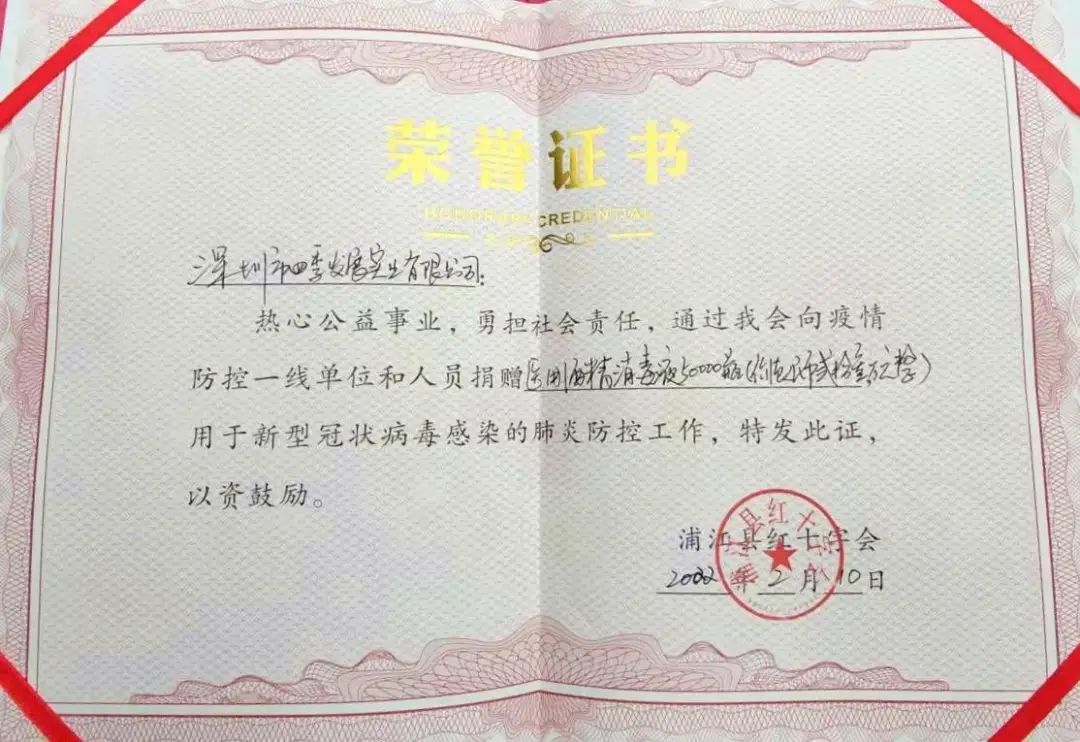 荣誉证书
HONORARY CREDENTIAL
深圳市四季发展实业有限公司:
热心公益事业，勇担社会责任，通过我会向疫情
防控一线单位和人员捐赠医用酒精消毒液50000瓶(价值
用于新型冠状病毒感染的肺炎防控工作，特发此证，
以资鼓励。
浦江县红十字会
年2月10日
浦江县红十字会